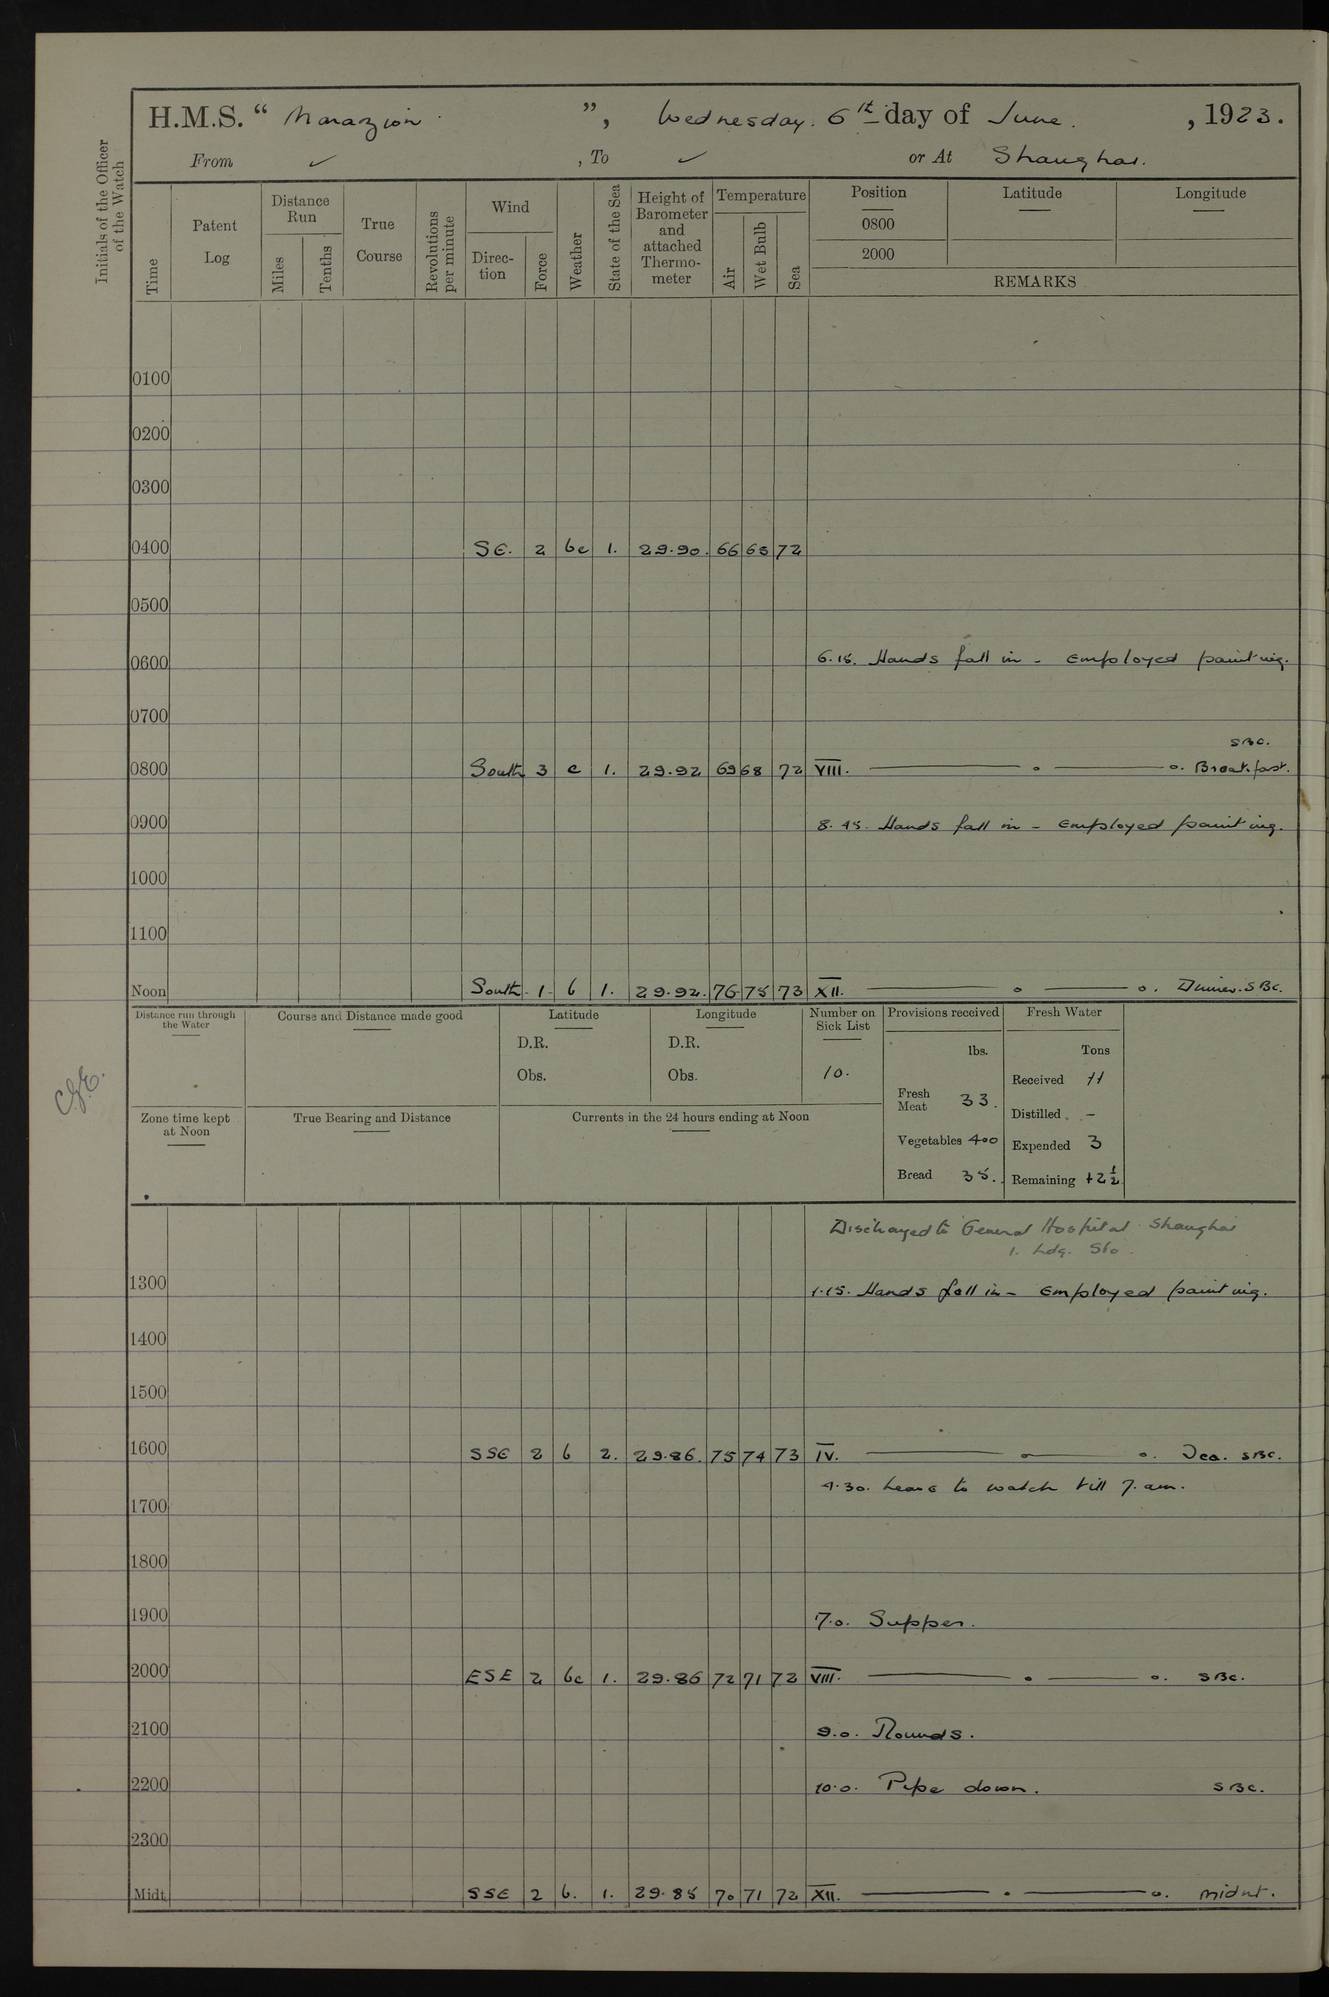 H.M.S. “ Marazion ”, Wednesday. 6th day of June. , 1923.
From ✓ , To ✓ or At Shanghai.
Initials of the Officer of the Watch
Time
Patent Log
Distance Run
Miles
Tenths
True Course
Revolutions per minute
Wind
Direc-tion
Force
Weather
State of the Sea
Height of Barometer and attached Thermo-meter
Temperature
Air
Wet Bulb
Sea
Position Latitude Longitude
0800
2000
REMARKS
0100
0200
0300
0400 SE. 2 bc 1. 29.90. 66 65 72
0500
0600 6.15. Hands fall in - Employed painting.
0700
SBC.
0800 South 3 c 1. 29.92 69 68 72 VIII. Breakfast.
0900 8.45. Hands fall in - Employed painting.
1000
1100
Noon South. 1. b 1. 29.92. 76 75 73 XII. Dinner. SBC.
Distance run through the Water
Course and Distance made good
Latitude
D.R.
Obs.
Longitude
D.R.
Obs.
Number on Sick List
10.
Provisions received
lbs.
Fresh Meat 33.
Vegetables 400
Bread 35.
Fresh Water
Tons
Received 11
Distilled -
Expended 3
Remaining 42½
Zone time kept at Noon
True Bearing and Distance
Currents in the 24 hours ending at Noon
Discharged to General Hospital Shanghai
1. Ldg. Sto.
1300 1.15. Hands fall in - Employed painting.
1400
1500
1600 SSE 2 b 2. 29.86. 75 74 73 IV. Tea. SBC.
4.30. Leave to watch till 7. am.
1700
1800
1900 7.0. Supper.
2000 ESE 2 bc 1. 29.86 72 71 72 VIII. SBC.
2100 9.0. Rounds.
2200 10.0. Pipe down. SBC.
2300
Midt. SSE 2 b. 1. 29.85 70 71 72 XII. midnt.